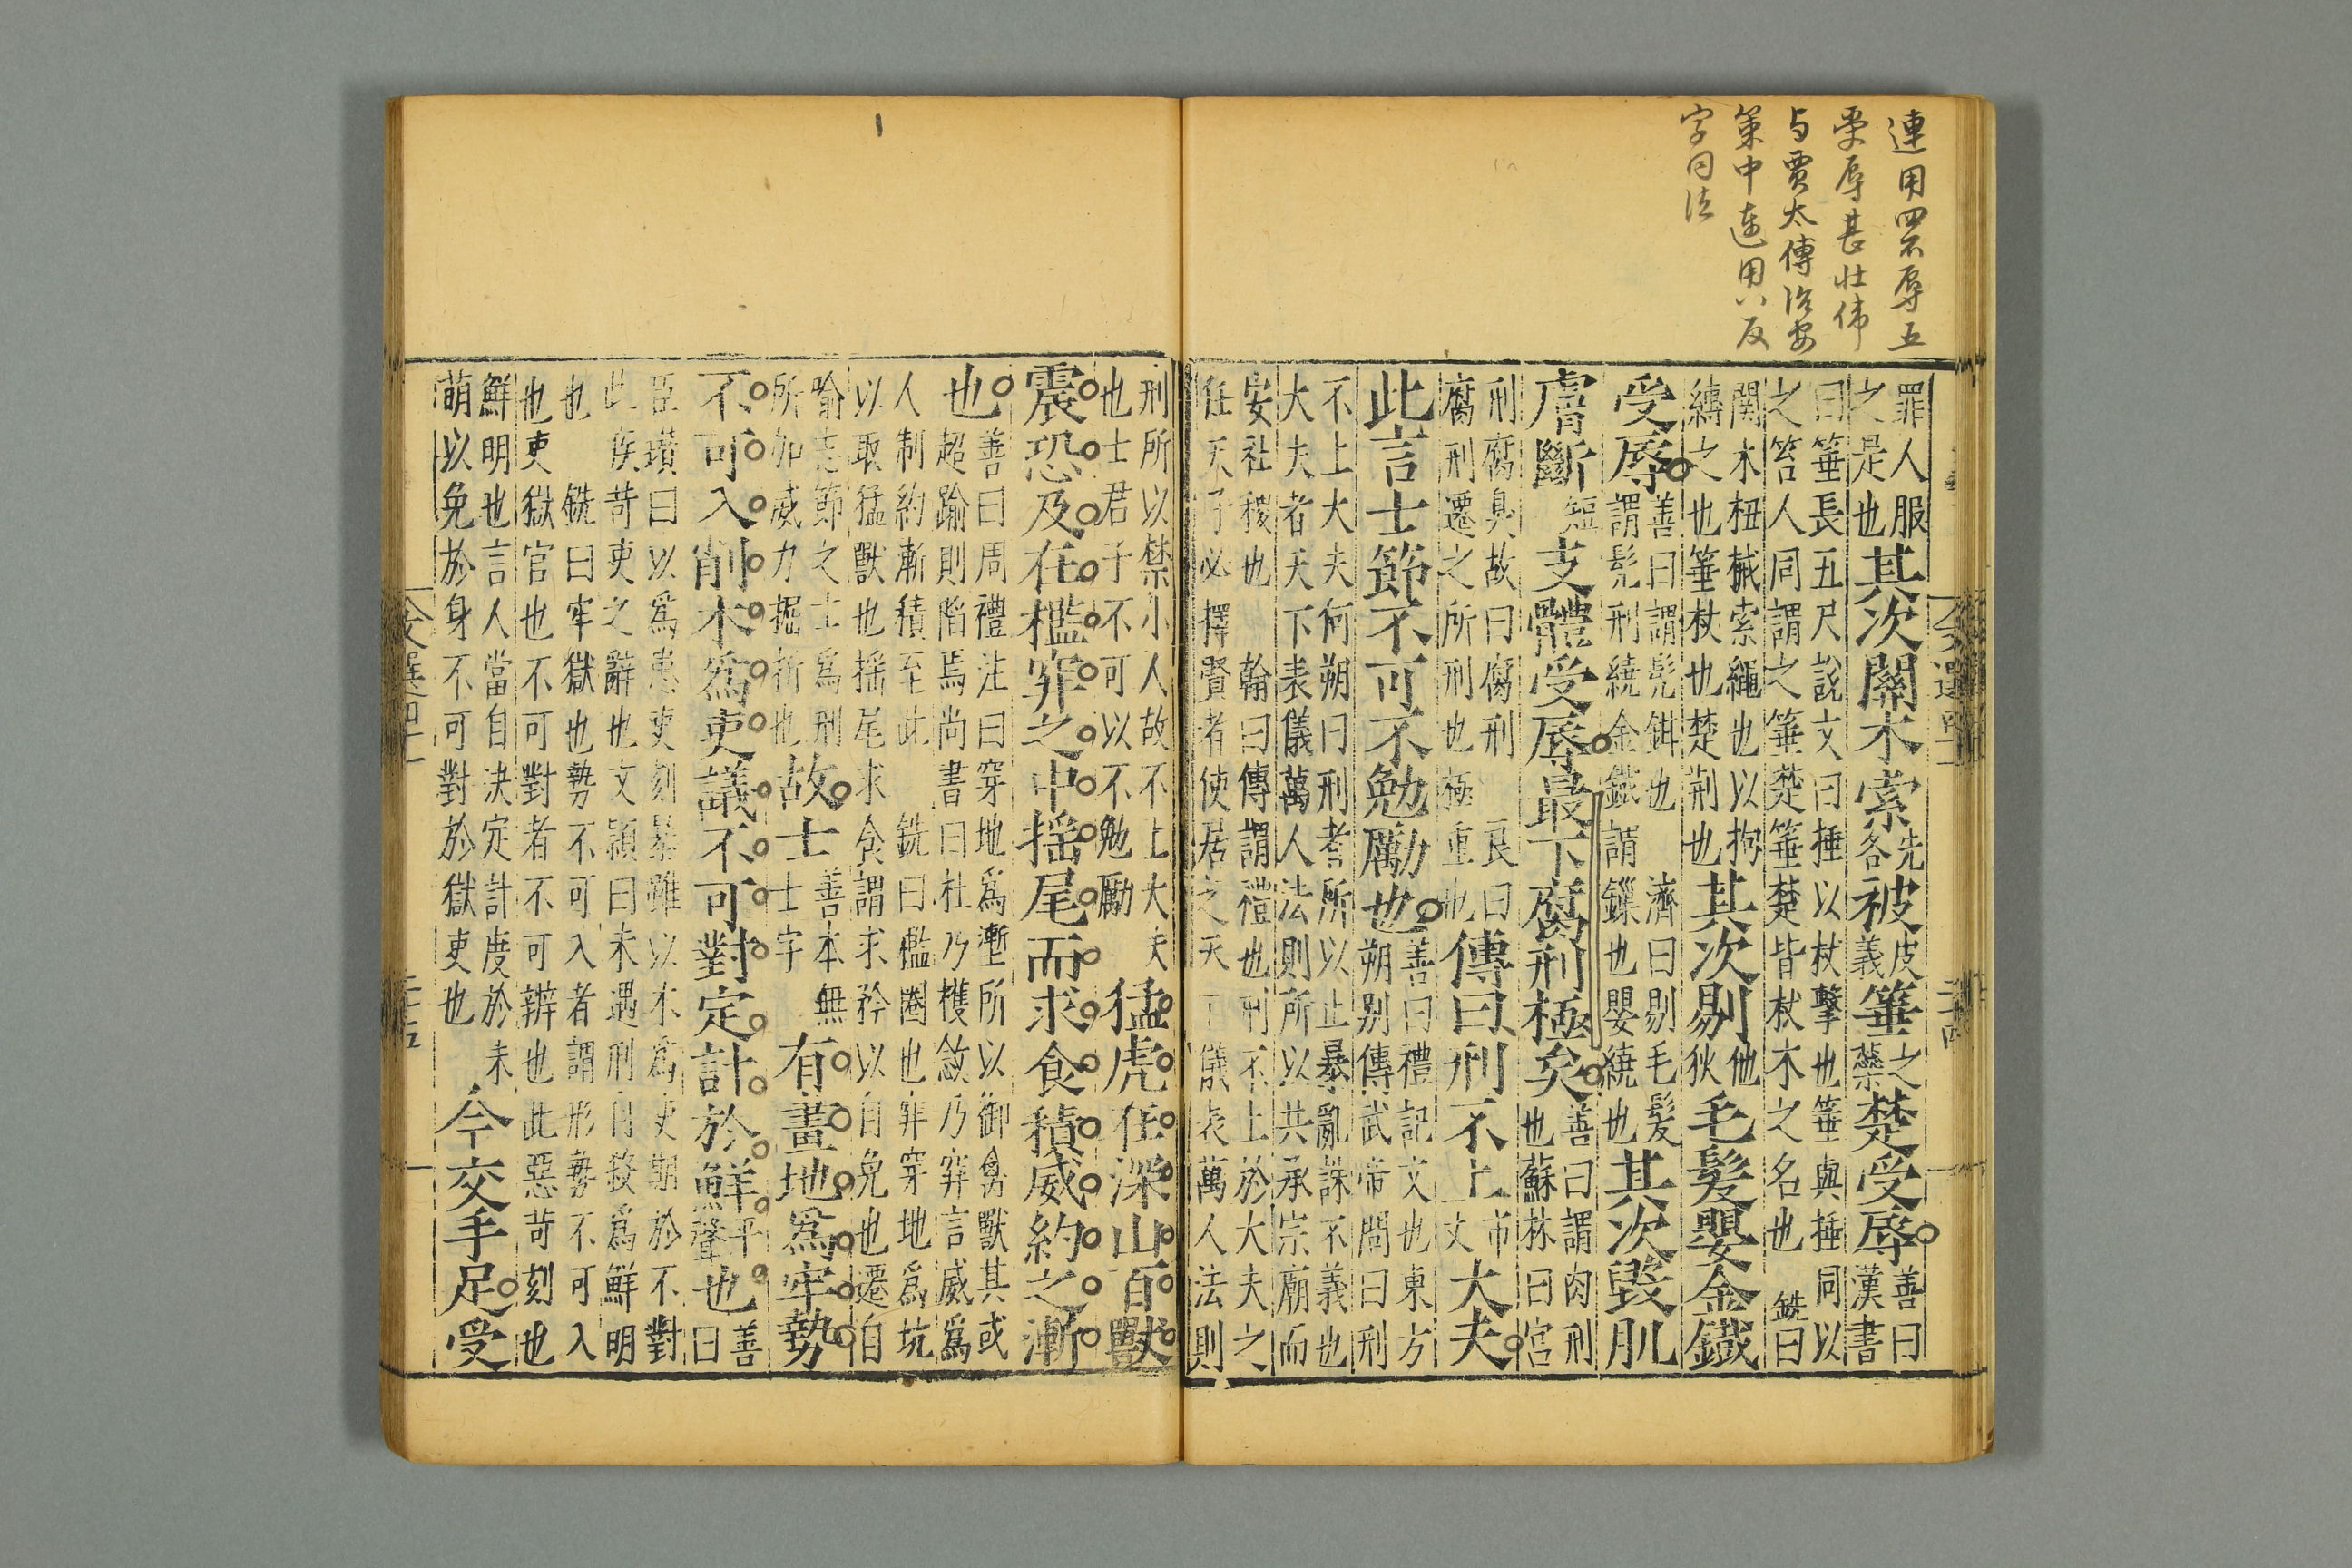 連用四不辱五
受辱甚壯偉
与賈太傅治安
策中連用八反
字同法
文選四十一 二十四
罪人服之是也其次關木索先各被皮義箠之蘂楚受辱善曰漢書
曰箠長五尺說文曰捶以杖擊也箠與捶同以
之笞人同謂之箠楚箠楚皆杖木之名也 銑曰
關木杻械索繩也以拘縳之也箠杖也楚荆也其次剔他狄毛髮嬰金鐵
受辱善曰謂髠鉗也謂髠刑繞金鐵 濟曰剔毛髮謂鏁也嬰繞也其次毀肌
膚斷短支體受辱最下腐刑極矣善曰謂肉刑也蘇林曰宮
刑腐臭故曰腐刑 良曰腐刑遷之所刑也極重也傳曰刑不上市丈大夫
此言士節不可不勉勵也善曰禮記文也東方朔別傳武帝問曰刑
不上大夫何朔曰刑者所以止暴亂誅不義也
大夫者天下表儀萬人法則所以共承宗廟而
安社稷也 翰曰傳謂禮也刑不上於大夫之
任天子必擇賢者使居之天下儀表萬人法則
刑所以禁小人故不上大夫也士君子不可以不勉勵猛虎在深山百獸
震恐及在檻穽之中搖尾而求食積威約之漸
也善曰周禮注曰穿地爲壍所以御禽獸其或超踰則陷焉尚書曰杜乃擭敜乃穽言威爲
人制約漸積至此 銑曰檻圈也穽穿地爲坑
以取猛獸也搖尾求食謂求矜以自免也遷自
喻志節之士爲刑所加威力摧折也故士善本無士字有畫地爲牢勢
不可入削木爲吏議不可對定計於鮮平聲也善曰
臣瓉曰以爲患吏刻暴雖以木爲吏期於不對
此疾苛吏之辭也文頴曰未遇刑自殺爲鮮明
也 銑曰牢獄也勢不可入者謂形勢不可入
也吏獄官也不可對者不可辨也此惡苛刻也
鮮明也言人當自決定計度於未萌以免於身不可對於獄吏也今交手足受
文選四十一 二十五